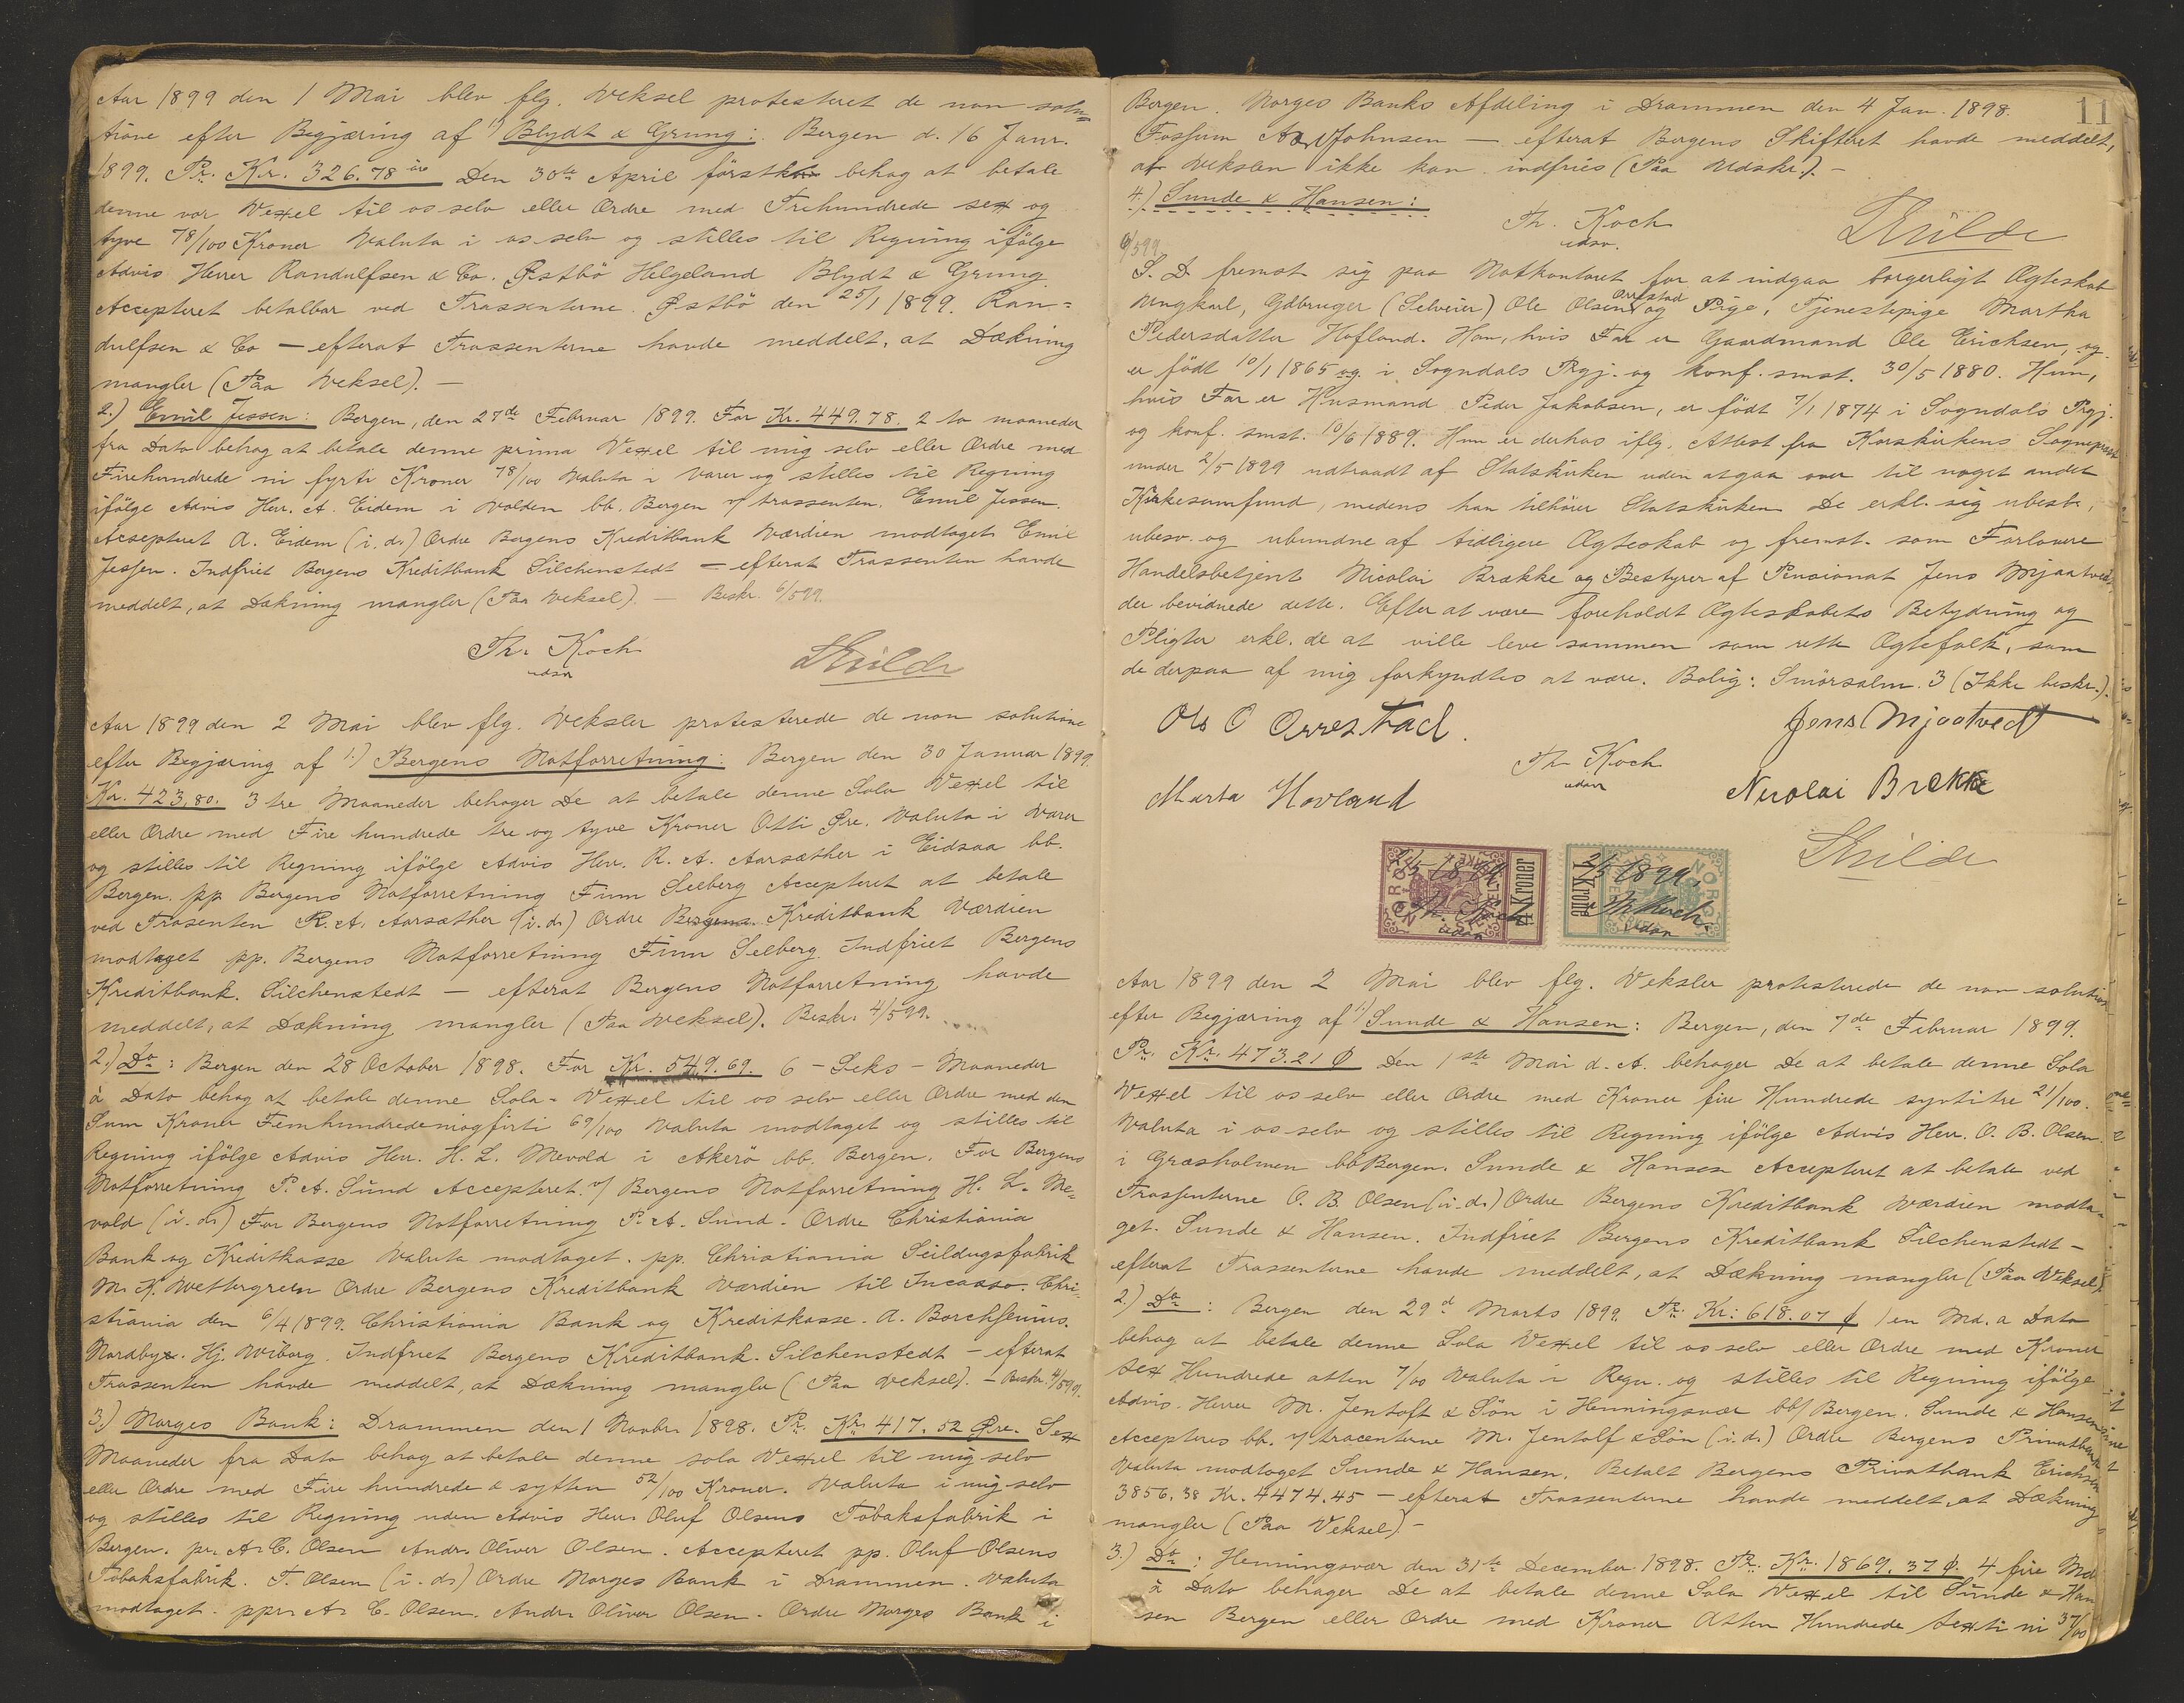 Aar 1899 den 1 Mai blev flg. Veksel protesteret de non solu=
tione efter Begjæring af 1) Blydt & Grung: Bergen d. 16 Janr.
1899. Pr. Kr. 326.78 öre Den 30te April förstk. behag at betale
denne vor Vexel til os selv eller Ordre med Trehundrede sex og
tyve 78/100 Kroner Valuta i os selv og stilles til Regning ifölge
Advis Herrer Randulfsen & Co. Østbö Helgeland Blydt & Grung.
Accepteret betalbar ved Trassenterne. Østbö den 25/1 1899. Ran=
dulfsen & Co — efterat Trassenterne havde meddelt, at Dækning
mangler (Paa Veksel). —
2.) Emil Jessen: Bergen, den 27de Februar 1899. For Kr. 449.78. 2 to maaneder
fra Dato behag at betale denne prima Vexel til mig selv eller Ordre med
Firehundrede ni fyrti Kroner 78/100 Valuta i Varer og stilles til Regning
ifölge Advis Herr. A. Eidem i Valden bb. Bergen v/ trassenten. Emil Jessen.
Accepteret A. Eidem (i. d.) Ordre Bergens Kreditbank Værdien modtaget Emil
Jessen. Indfriet Bergens Kreditbank Silchenstedt — efterat Trassenten havde
meddelt, at Dækning mangler (Paa Veksel). — Beskr. 6/599.
Th. Koch
udsn
Skilde
Aar 1899 den 2 Mai blev flg. Veksler protesterede de non solutione
efter Begjæring af 1.) Bergens Notforretning: Bergen den 30 Januar 1899.
Kr. 423,80. 3 tre Maaneder behager De at betale denne Sola Vexel til
eller Ordre med Fire hundrede tre og tyve Kroner Otti Øre. Valuta i Varer
og stilles til Regning ifölge Advis Herr. R. A. Aarsæther i Eidsaa bb.
Bergen. pp Bergens Notforretning Finn Selberg Accepteret at betale
ved Trasenten R. A. Aarsæther (i. d.) Ordre Bergens Kreditbank Værdien
modtaget pp. Bergens Notforretning Finn Selberg. Indfriet Bergens
Kreditbank. Silchenstedt — efterat Bergens Notforretning havde
meddelt, at Dækning mangler (Paa Veksel). Beskr. 4/599.
2.) Do: Bergen den 28 October 1898. For Kr. 549.69. 6 – Seks – Maaneder
à Dato behag at betale denne Sola-Vexel til os selv eller Ordre med den
Sum Kroner Femhundredeniogfirti 69/100 Valuta modtaget og stilles til
Regning ifölge Advis Herr. H. L. Mevold i Akerö bb. Bergen. For Bergens
Notforretning P. A. Sund Accepteret. v/ Bergens Notforretning H. L. Me=
vold (i. d.) For Bergens Notforretning P. A. Sund. Ordre Christiania
Bank og Kreditkasse Valuta modtaget. pp. Christiania Seildugsfabrik
M. K. Wettergreen Ordre Bergens Kreditbank Værdien til Incasso. Chri-
stiania den 6/4 1899. Christiania Bank og Kreditkasse. A. Borchgenius.
Nordbye. Hj. Wiborg. Indfriet Bergens Kreditbank. Silchenstedt – efterat
Trassenten havde meddelt, at Dækning mangler (Paa Veksel). – Beskr. 4/599.
3.) Norges Bank: Drammen den 1 Novbr. 1898. Pr. Kr. 417.52 Øre. Sex
Maaneder fra Dato behag at betale denne sola Vexel til mig selv
eller Ordre med Fire hundrede & sytten 52/100 Kroner. Valuta i mig selv
og stilles til Regning uden Advis Herr Oluf Olsens Tobaksfabrik i
Bergen. pr. A. C. Olsen Andr. Oliver Olsen. Accepteret pp. Oluf Olsens
Tobaksfabrik. T. Olsen (i. d.) Ordre Norges Bank i Drammen. Valuta
modtaget. ppr. A. C. Olsen. Andr. Oliver Olsen. Ordre Norges Bank i
11
Bergen. Norges Banks Afdeling i Drammen den 4 Jan. 1898.
Fossum Johnsen — efterat Bergens Skifteret havde meddelt,
at Vekslen ikke kan indfries (Paa Udskr.). –
4.) Sunde & Hansen:
Th. Koch
udsn.
Skilde
6/599
S. D. fremst. sig paa Notkontoret for at indgaa borgerligt Ægteskab
Ungkarl, Gdbruger (Selveier) Ole Olsen Orrestad og Pige, Tjenestepige Martha
Pedersdatter Hofland. Han, hvis Far er Gaardmand Ole Erichsen, og
er födt 10/1 1865 og i Sogndals Prgj. og konf. smst. 30/5 1880. Hun,
hvis Far er Husmand Peder Jakobsen, er födt 7/1 1874 i Sogndals Prgj.
og konf. smst. 10/6 1889. Hun er derhos iflg. Attest fra Korskirkens Sogneprest
under 2/5 1899 udtraadt af Statskirken uden at gaa over til noget andet
Kirkesamfund, medens han tilhörer Statskirken De erkl. sig ubesl.,
ubesv. og ubundne af tidligere Ægteskab og fremst. som Forlovere
Handelsbetjent Nicolai Brække og Bestyrer af Pensionat Jens Mjaatvedt,
der bevidnede dette. Efter at være foreholdt Ægteskabets Betydning og
Pligter erkl. de at ville leve sammen som rette Ægtefolk, som
de derpaa af mig forkyndtes at være. Bolig: Smörsalm. 3 (Ikke beskr.).
Ole O Orrestad.
Jens Mjaatvedt
Th. Koch
udsn
Marta Hovland
Nicolai Brekke
Skilde
2/5 1899.
Th. Koch
udsn
4 Kroner
NORGE
2/5 1899.
Th. Koch.
udsn
1 Krone
NORGE
Aar 1899 den 2 Mai blev flg. Veksler protesterede de non solution
efter Begjæring af 1) Sunde & Hansen: Bergen, den 7de Februar 1899.
Pr. Kr. 473.21 Ø Den 1ste Mai d. A. behager De at betale denne Sola
Vexel til os selv eller Ordre med Kroner fire Hundrede syvti tre 21/100.
Valuta i os selv og stilles til Regning ifölge Advis Herr. O. B. Olsen
i Græsholmen bb Bergen. Sunde & Hansen Accepteret at betale ved
Trassenterne O. B. Olsen (i. d.) Ordre Bergens Kreditbank Værdien modta=
get. Sunde & Hansen. Indfriet Bergens Kreditbank Silchenstedt –
efterat Trassenterne havde meddelt, at Dækning mangler (Paa Veksel).
2.) Do: Bergen den 29d Marts 1899. Pr. Kr: 618.07 ø 1 en Md. a Dato
behag at betale denne Sola Vexel til os selv eller Ordre med Kroner
sex Hundrede atten 7/100 Valuta i Regn. og stilles til Regning ifölge
Advis. Herrer M. Jentoft & Sön i Henningsvær bb/ Bergen. Sunde & Hansen
Accepteres bb. v/ tracenterne M. Jentoft & Sön (i. d.) Ordre Bergens Privatbank
Valuta modtaget Sunde & Hansen. Betalt Bergens Privatbank Erichsen
3856.38 Kr. 4474.45 – efterat Trassenterne havde meddelt, at Dækning
mangler (Paa Veksel). –
3.) Do: Henningsvær den 31te December 1898. Pr. Kr. 1869.37 Ø. 4 fire Md.
à Dato behager De at betale denne Sola Vexel til Sunde & Han
sen Bergen eller Ordre med Kroner Atten Hundrede sexti ni 37/100